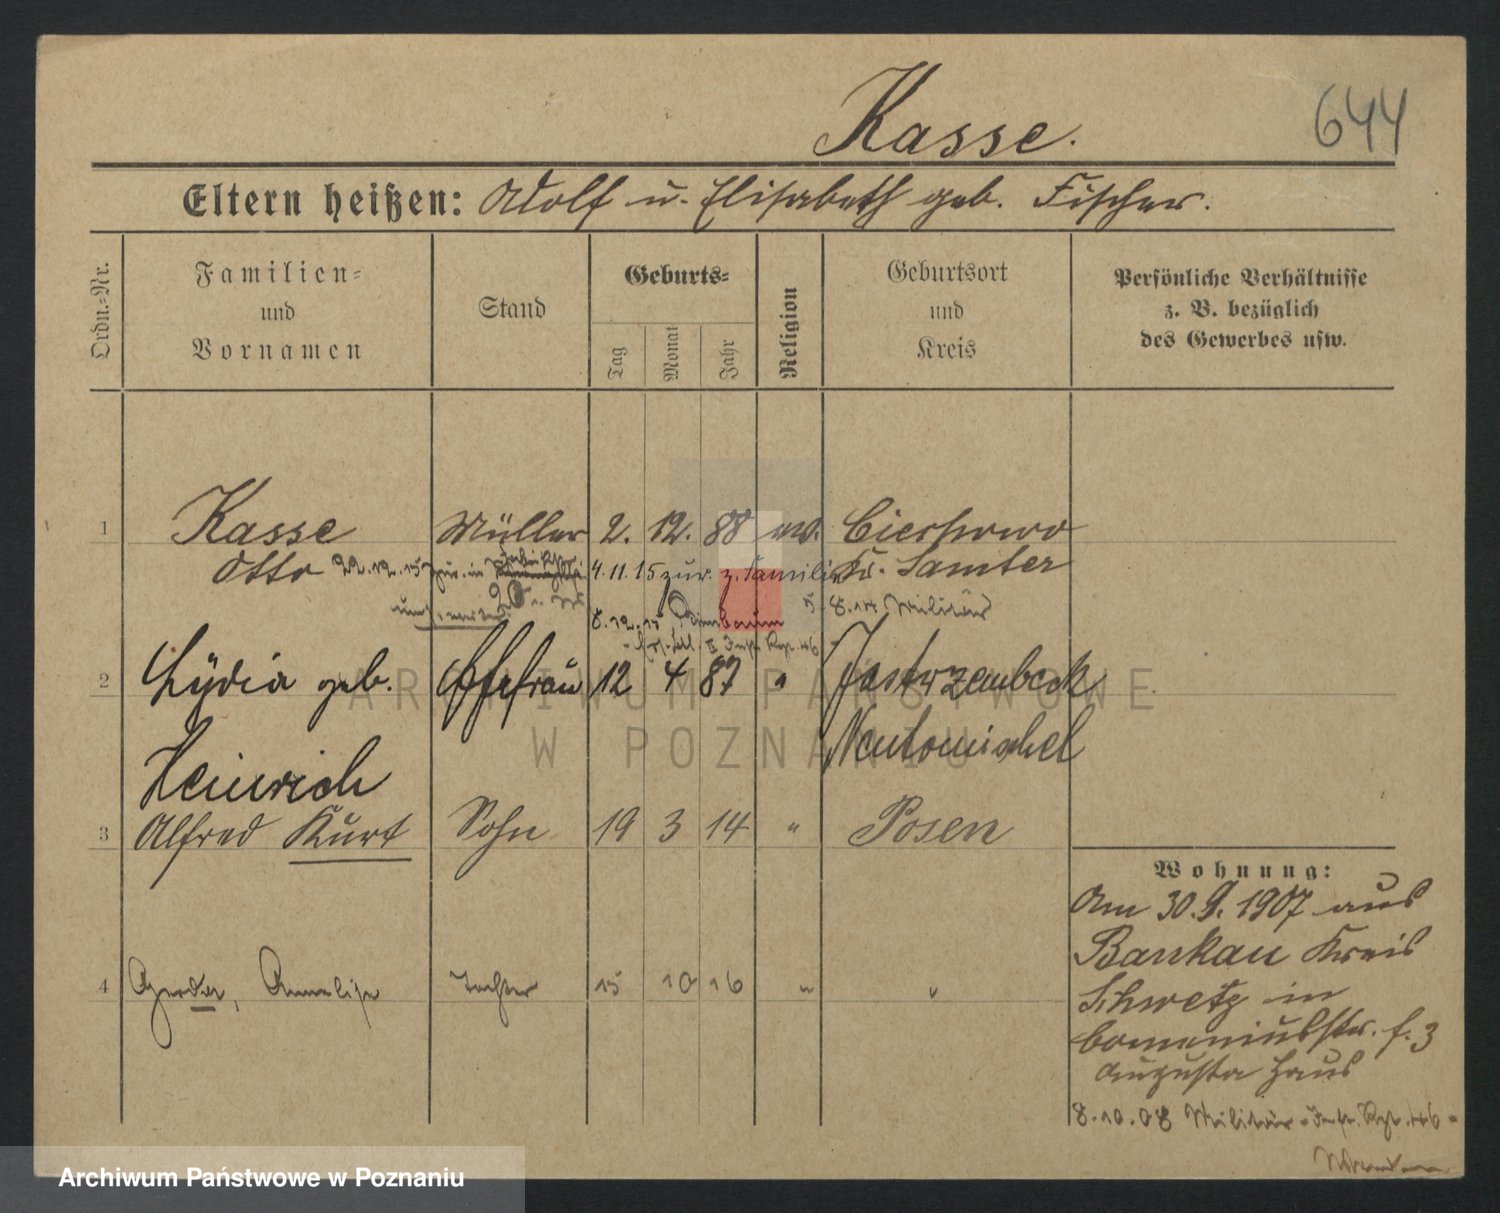 Kasse.
644
Eltern heißen: Adolf u. Elisabeth geb. Fischer.
Ordn.-Nr.
Familien- und Vornamen
Stand
Geburts-
Tag
Monat
Jahr
Religion
Geburtsort und Kreis
Persönliche Verhältnisse
z. B. bezüglich
des Gewerbes usw.
1 Kasse Müller 2. 12. 88 Cierkowo
Otto 22.12.15 zur. in 4.11.15 zur. z. Familie Kr. Samter
8.12.15 5.8.14 Militär
Inf. Rgt. 46
2 Lydia geb. Ehefrau 12 4 87 " Jastrzembek
Heinrich Neutomischel
3 Alfred Kurt Sohn 19 3 14 " Posen
4 Gerda, Annelise Tochter 15 10 16 " "
Wohnung:
Am 30.9.1907 aus
Bankau Kreis
Schwetz in
Comeniusstr. f. 3
Augusta Haus
8.10.08 Militär-Inf. Rgt. 46-
ARCHIWUM PAŃSTWOWE
W POZNANIU
Archiwum Państwowe w Poznaniu